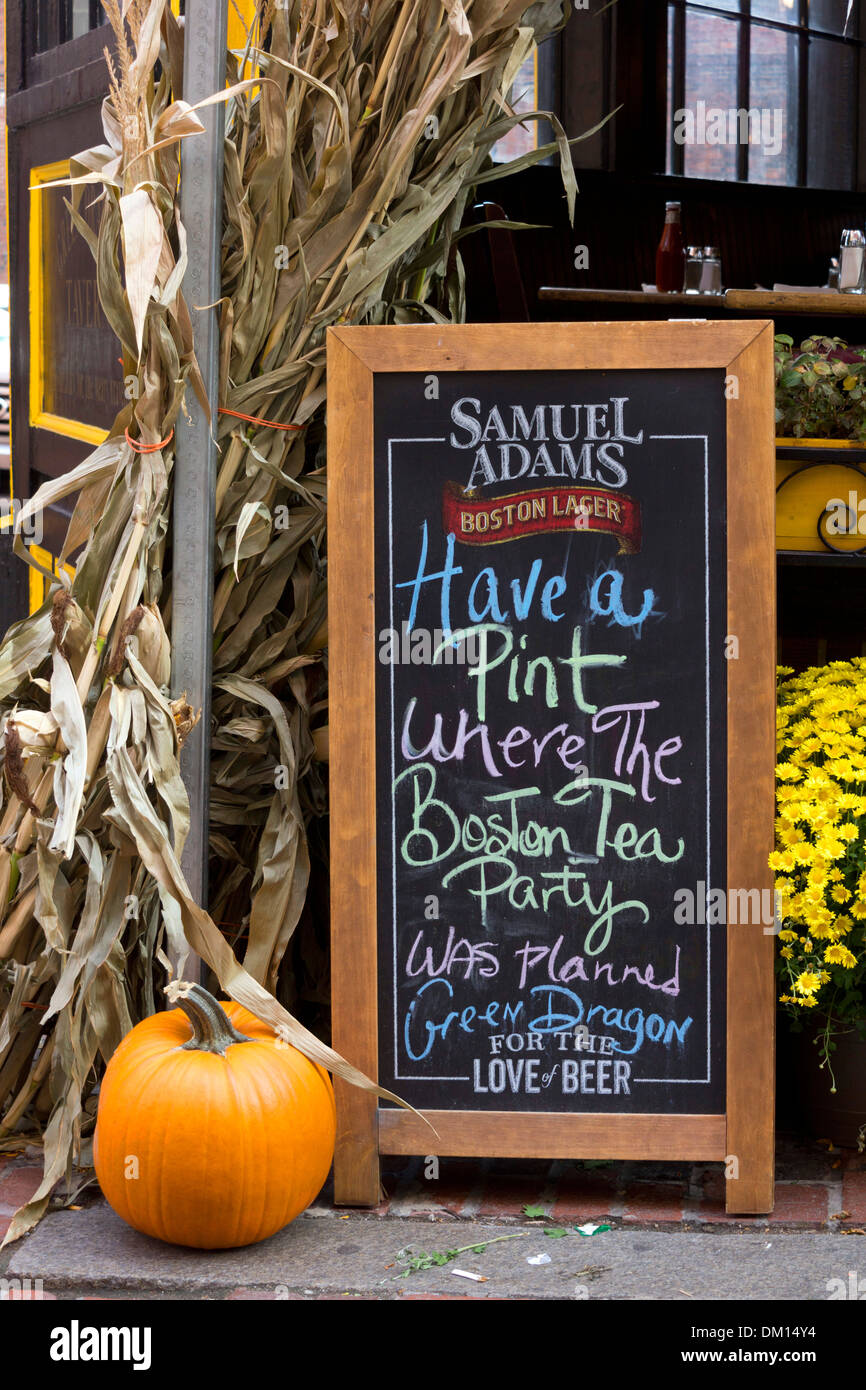 SAMUEL
ADAMS
BOSTON LAGER
Have a
Pint
where The
Boston Tea
Party
was planned
Green Dragon
FOR THE
LOVE of BEER
TAVERN
alamy
alamy
Image ID: DM14Y4
www.alamy.com